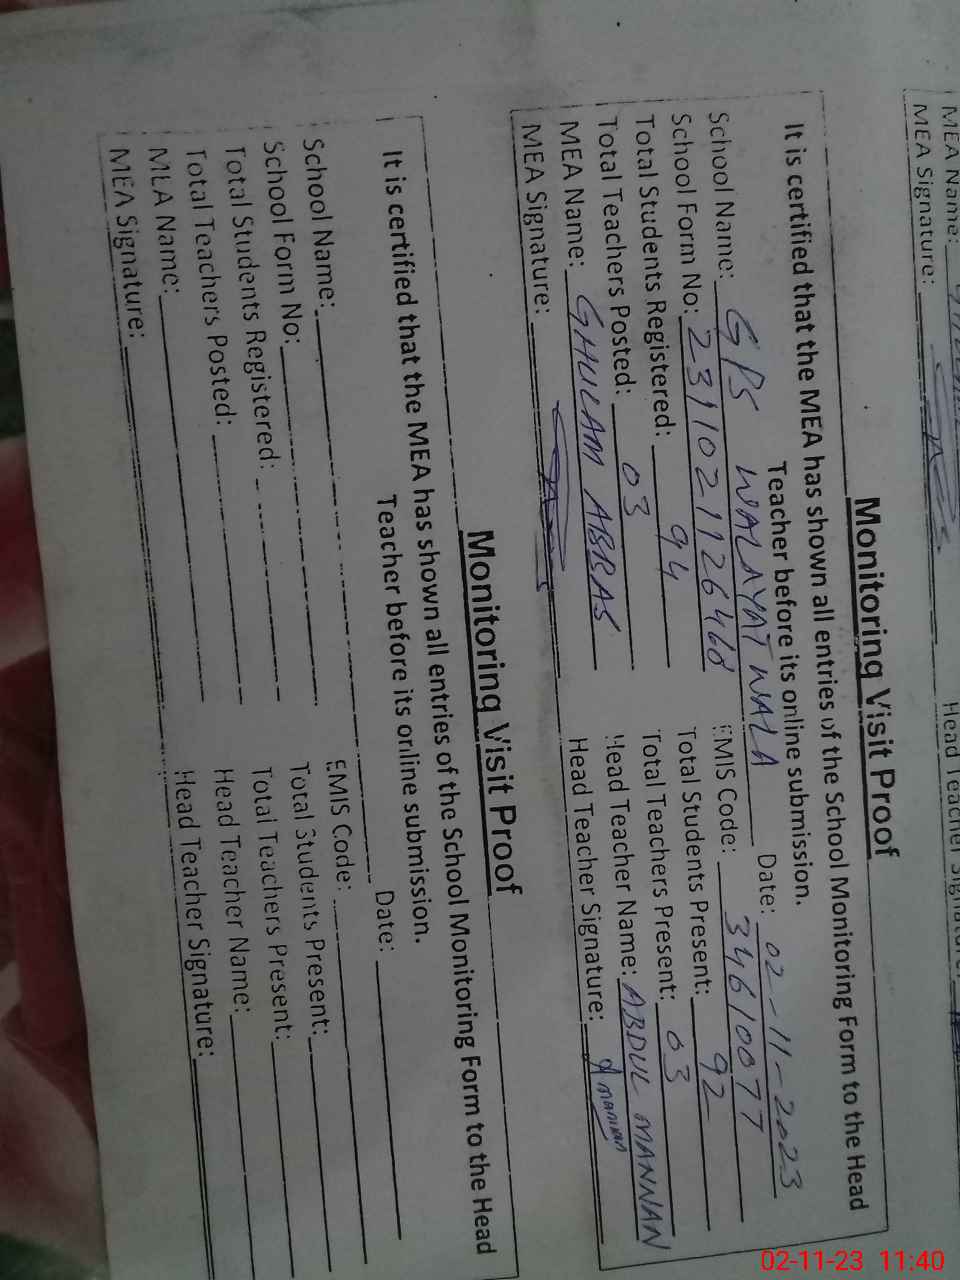 MEA Name:
MEA Signature: Head Teacher
Monitoring Visit Proof
It is certified that the MEA has shown all entries of the School Monitoring Form to the Head
Teacher before its online submission.
School Name: GPS WALAYAT WALA Date: 02-11-2023
School Form No: 231102112646 EMIS Code: 34610077
Total Students Registered: 94 Total Students Present: 92
Total Teachers Posted: 03 Total Teachers Present: 03
MEA Name: GHULAM ABBAS Head Teacher Name: ABDUL MANNAN
MEA Signature: Head Teacher Signature: Amannan
Monitoring Visit Proof
It is certified that the MEA has shown all entries of the School Monitoring Form to the Head
Teacher before its online submission.
School Name: Date:
School Form No: EMIS Code:
Total Students Registered: Total Students Present:
Total Teachers Posted: Total Teachers Present:
MEA Name: Head Teacher Name:
MEA Signature: Head Teacher Signature:
02-11-23 11:40